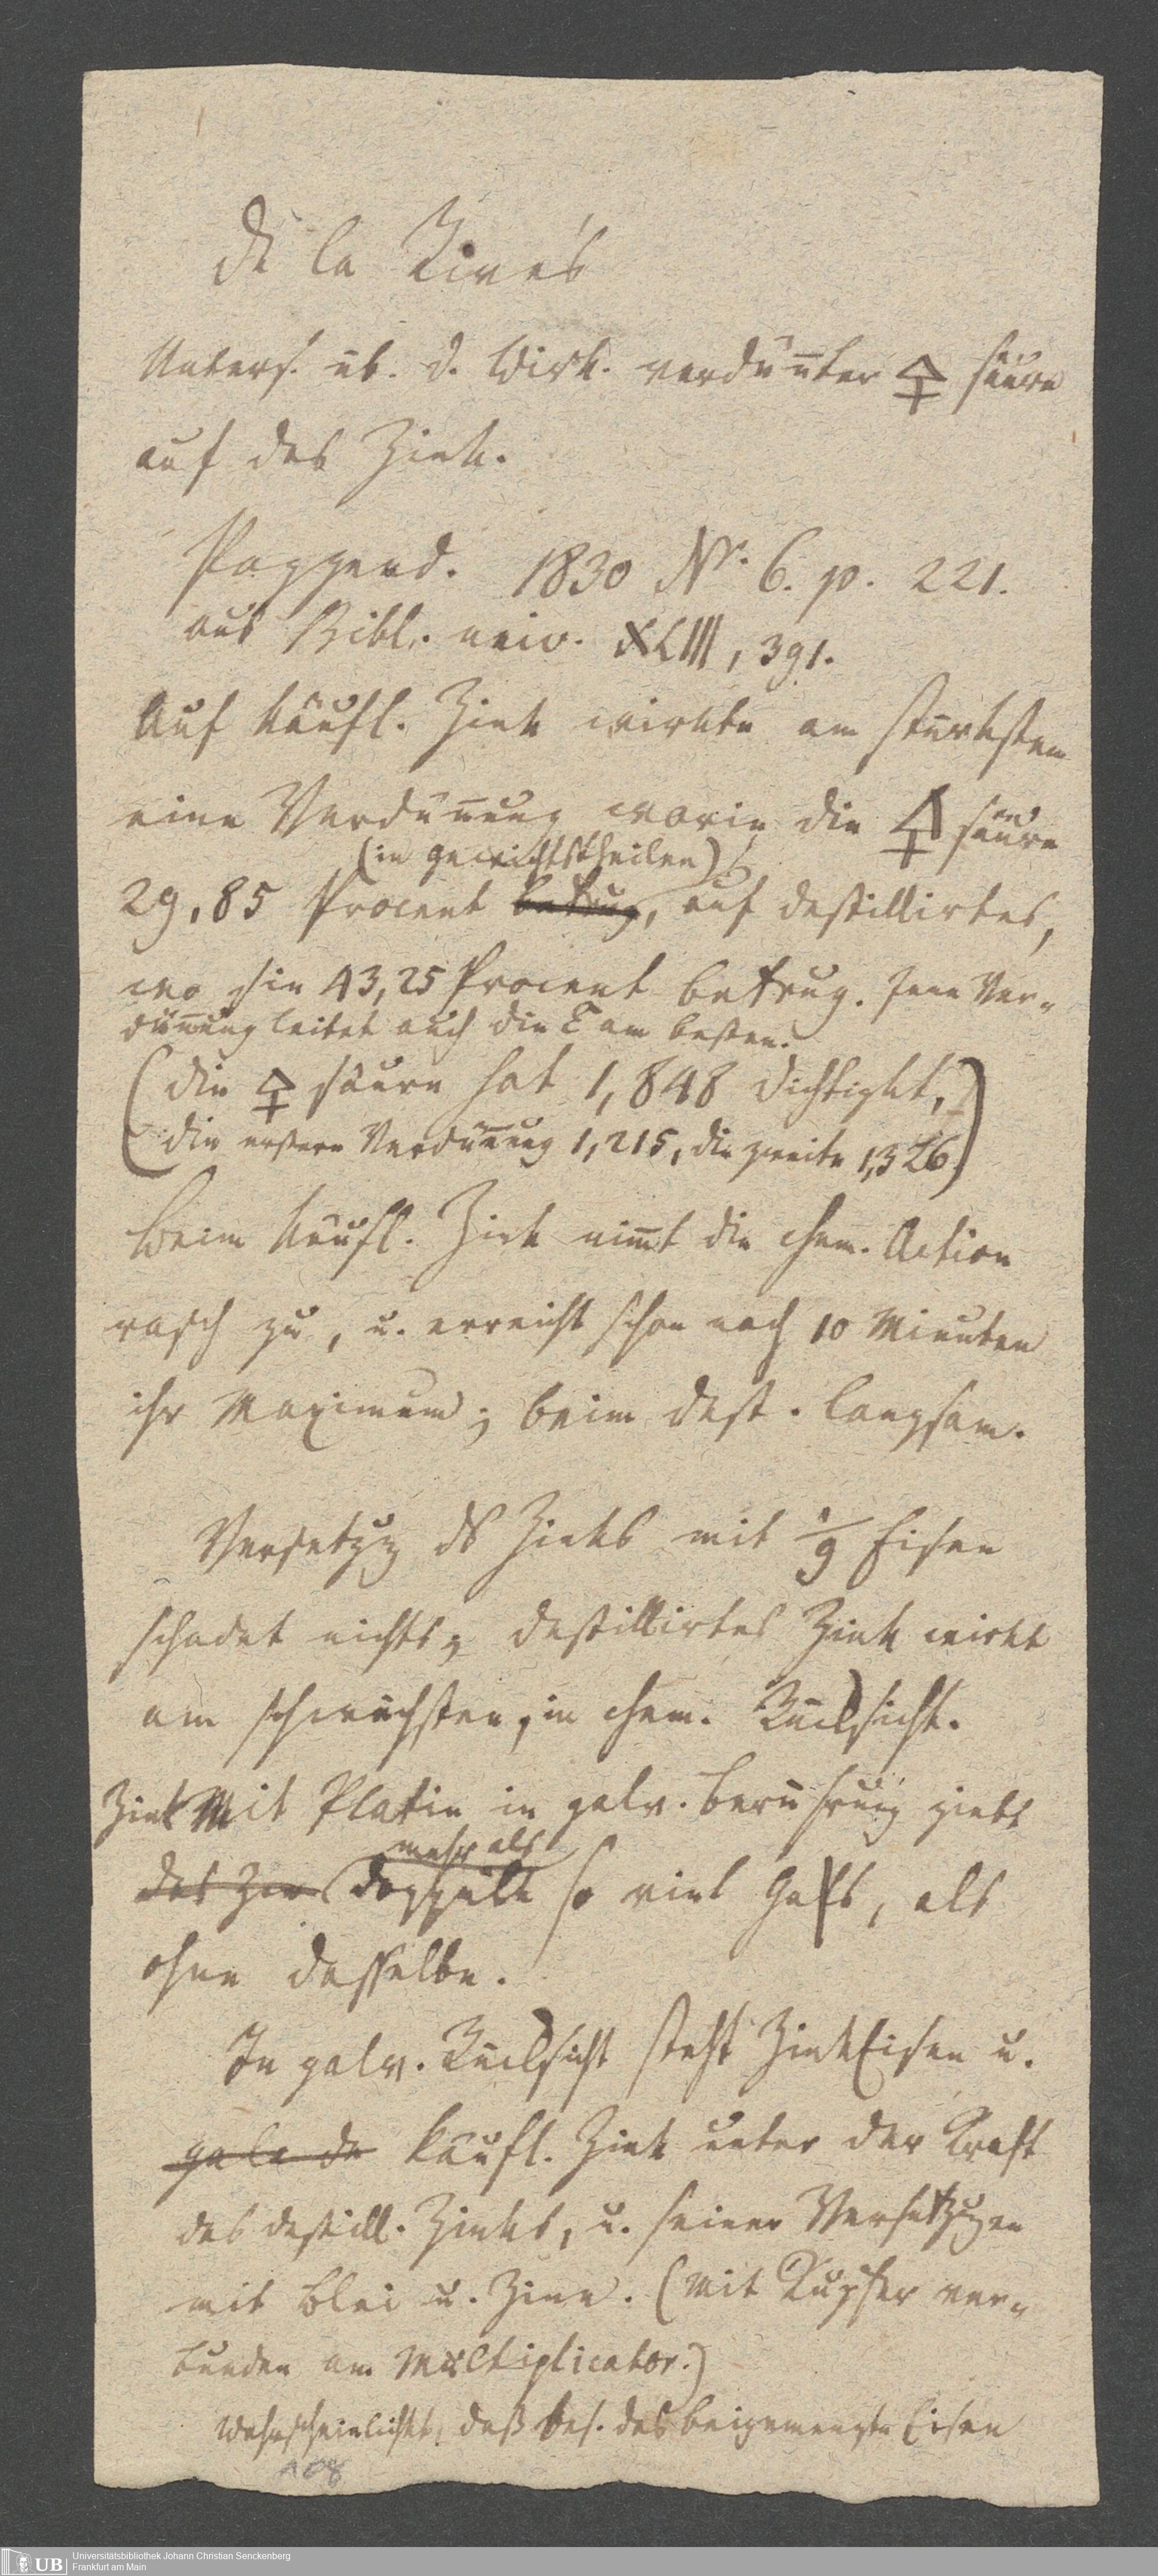 De la Rive's
Unters. üb. d. Wirk. verdün̅ter 🜍 säure
auf das Zink.
Poggend. 1830 Nr. 6. p. 221.
aus Bibl. univ. XLIII, 391.
Auf käufl. Zink wirkte am stärksten
eine Verdün̅ung worin die 🜍 säure
(in gewichtstheilen)
29,85 Procent betrug, auf destillirtes,
wo sie 43,25 Procent betrug. Jene Ver-
dün̅ung leitet auch die E am besten.
(die 🜍 säure hat 1,848 Dichtigkt,
die erstere Verdün̅ung 1,215, die zweite 1,326.)
Beim käufl. Zink nim̅t die chem. Action
rasch zu, u. erreicht schon nach 10 Minuten
ihr Maximum; beim dest. langsam.
Versetzg ds Zinks mit 1/9 Eisen
schadet nichts; destillirtes Zink wirkt
am schwächsten, in chem. Rücksicht.
Zink Mit Platin in galv. Berührung giebt
mehr als
das Zin doppelt so viel Gas, als
ohne dasselbe.
In galv. Rücksicht steht ZinkEisen u.
käufl. Zink unter der Kraft
des destill. Zinks, u. seiner Versetzgen
mit Blei u. Zinn. (Mit Kupfer ver-
bunden am Multiplicator.)
Wahrscheinlichkt, daß bes. das beigemengte Eisen
108
UB Universitätsbibliothek Johann Christian Senckenberg
Frankfurt am Main